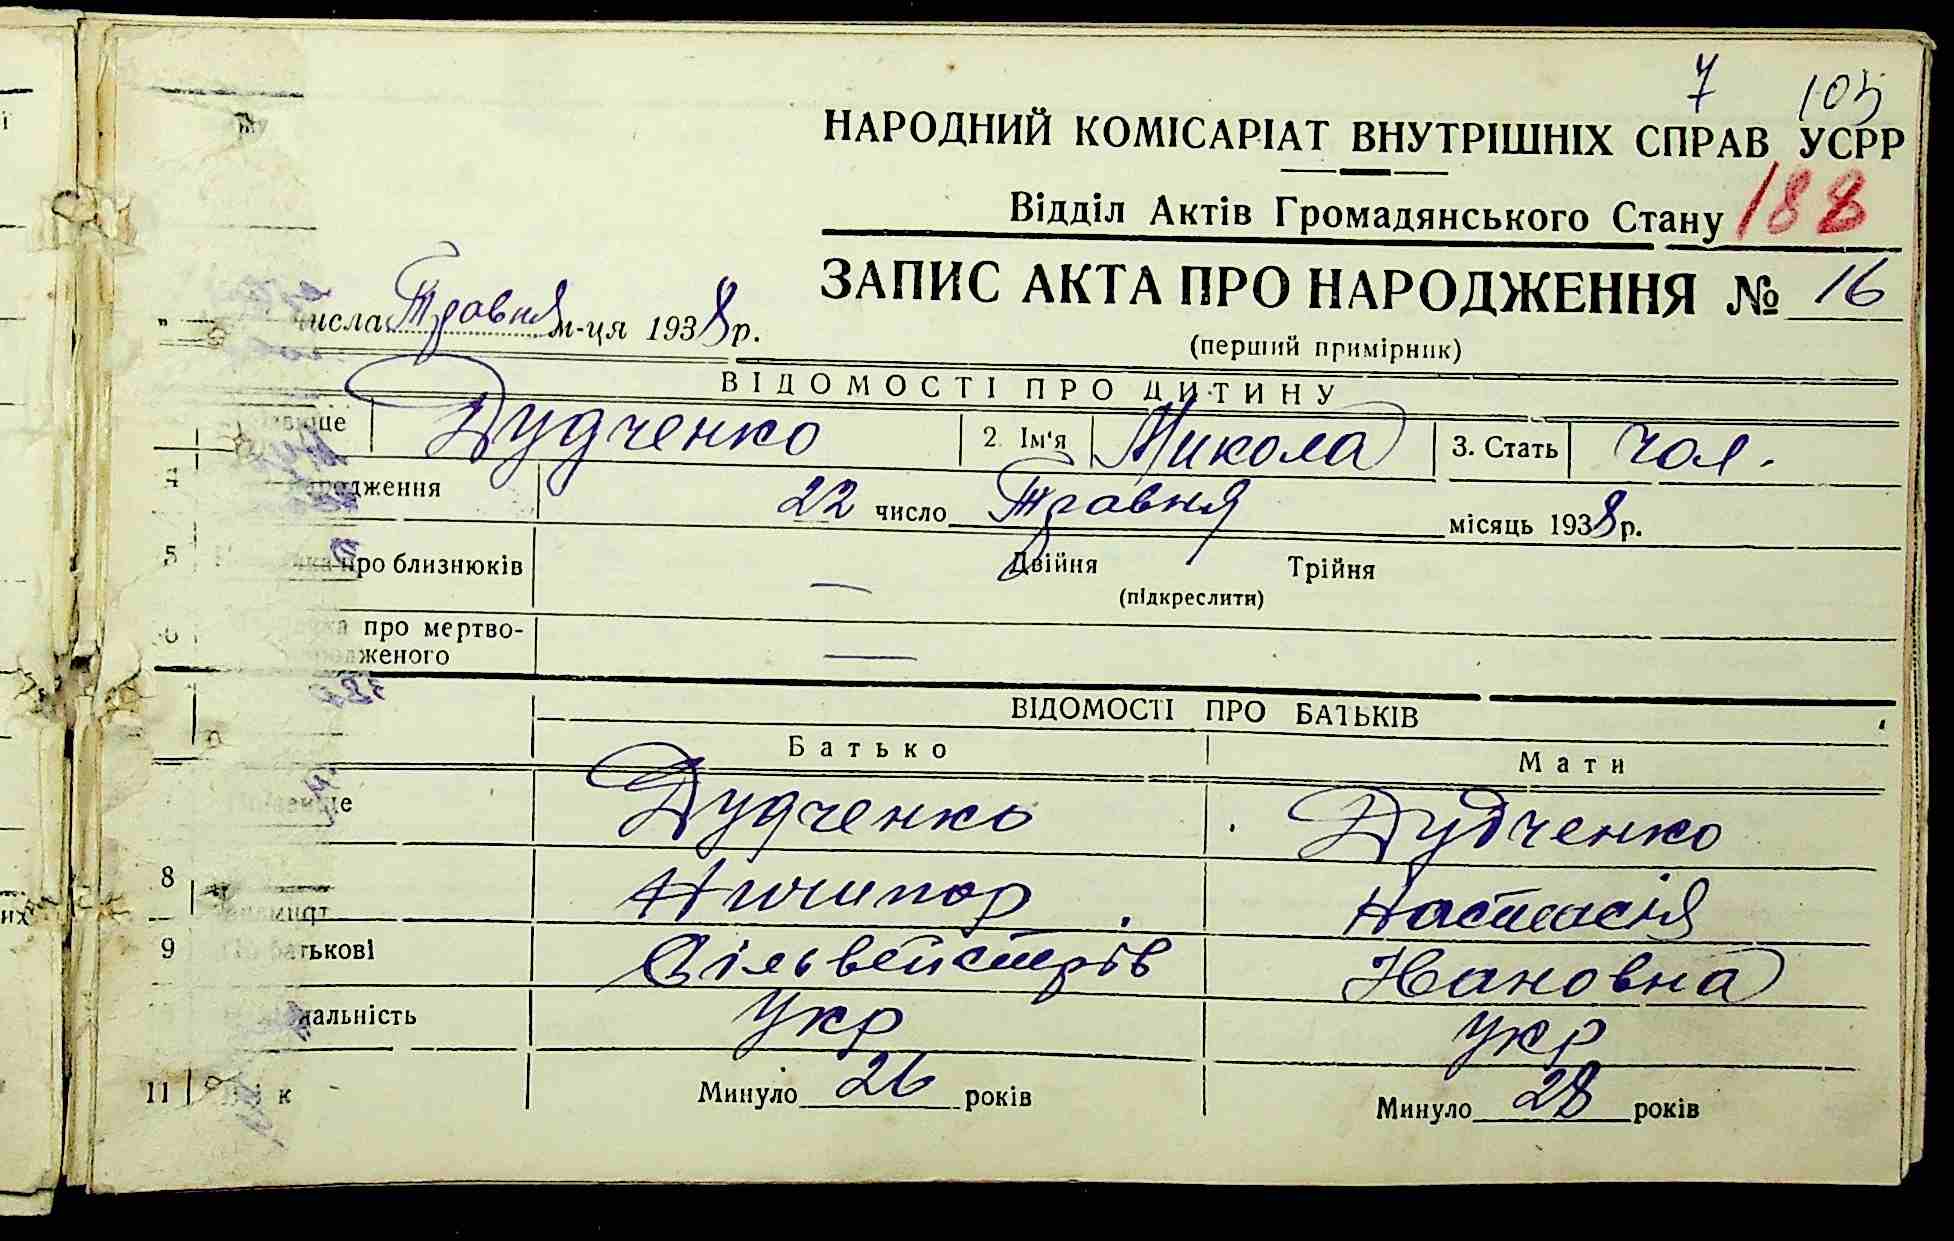 7 105
НАРОДНИЙ КОМІСАРІАТ ВНУТРІШНІХ СПРАВ УСРР
Відділ Актів Громадянського Стану 188
ЗАПИС АКТА ПРО НАРОДЖЕННЯ № 16
числа Травня м-ця 1938 р.
(перший примірник)
ВІДОМОСТІ ПРО ДИТИНУ
Дудченко 2. Ім'я Микола 3. Стать чол.
4 народження 22 число Травня місяць 1938 р.
5 про близнюків — Двійня Трійня
(підкреслити)
6 про мертво-
родженого —
ВІДОМОСТІ ПРО БАТЬКІВ
Батько Мати
Прізвище Дудченко Дудченко
8 Ничипор Настасія
9 По батькові Сільвейстрів Нановна
Національність укр укр
11 Вік Минуло 26 років Минуло 28 років